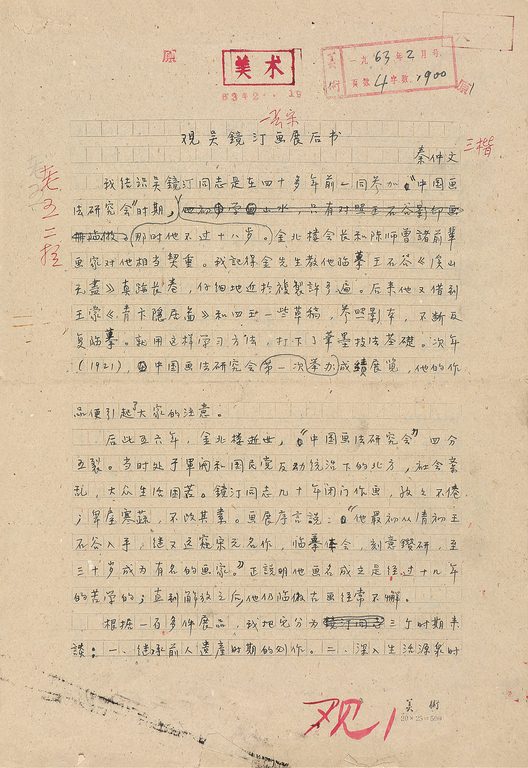 美术
6342
一九63年2月号
頁数4字数1900
美術
一宋
观吴鏡汀画展后书
三楷
秦仲文
老五二拴
我结识吴鏡汀同志是在四十多年前一同参加“中国画
法研究会”时期，山水，只有对照王石谷影印画
册临做，那时他不过十八岁。金北楼会长和陈师曾諸前輩
画家对他相当契重。我記得金先生教他临摹王石谷《溪山
无盡》真跡长卷，仔细地近於複製許多遍。后来他又借到
王蒙《青卞隱居畵》和四王一些草稿，参照影本，不断反
复临摹。就用这样学习方法，打下了筆墨技法基礎。次年
(1921)，中国画法研究会第一次举办成績展览，他的作
品便引起了大家的注意。
后此五六年，金北楼逝世，“中国画法研究会”四分
五裂。当时处于軍阀和国民党反动统治下的北方，社会紊
乱，大众生活困苦。鏡汀同志九十年闭门作画，孜孜不倦
；單產寒蔬，不改其業。画展序言說：“他最初从清初王
石谷入手，继又远窥宋元名作，临摹体会，刻意鑽研，至
三十岁成为有名的画家。”正說明他画名成立是经过十几年
的苦学的；直到解放之后他仍临做古画经常不懈。
根据一百多件展品，我把它分为三个时期来
談：一、继承前人遗產时期的创作。二、深入生活源泉时
观1
美術
20×25=500